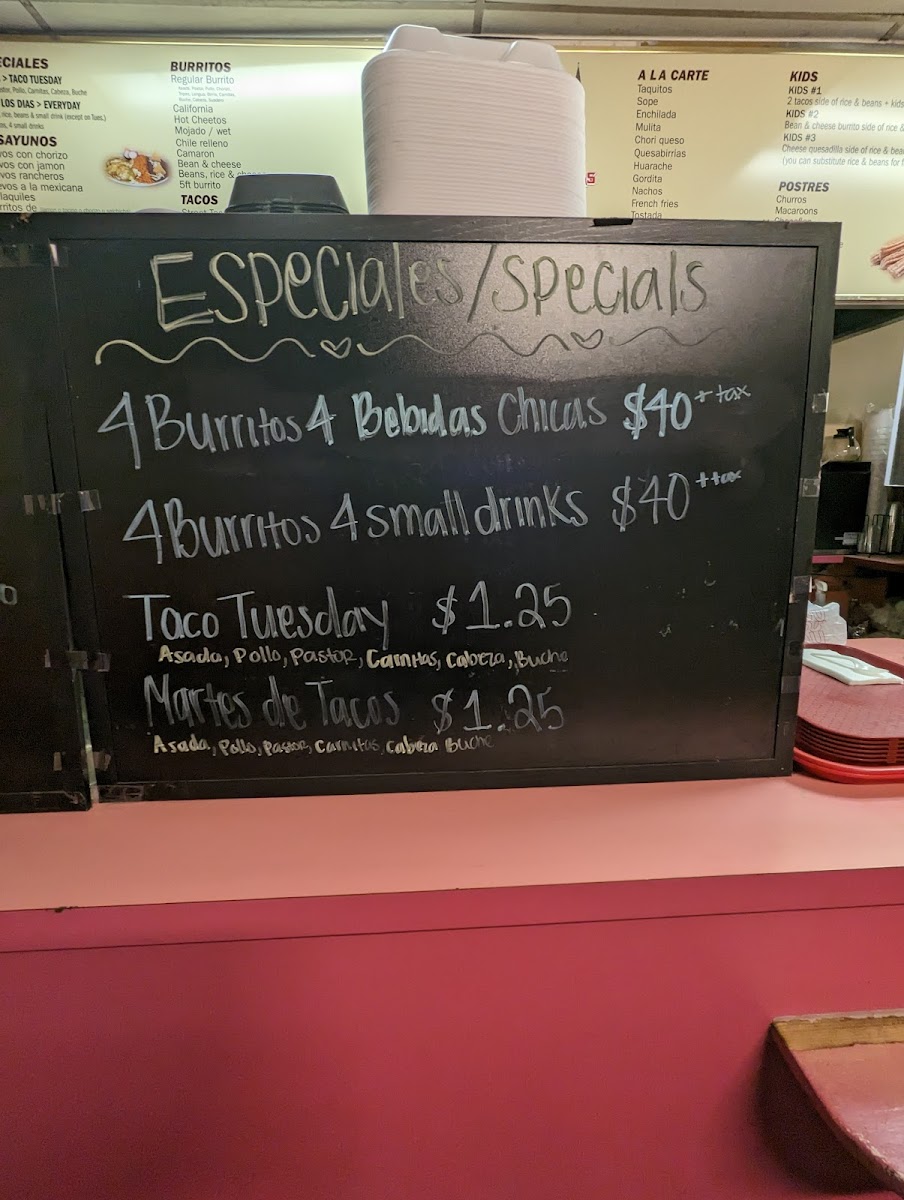 ECIALES
> TACO TUESDAY
Pollo, Carnitas, Cabeza, Buche
LOS DIAS > EVERYDAY
rice, beans & small drink (except on Tues.)
4 small drinks
SAYUNOS
vos con chorizo
vos con jamon
vos rancheros
evos a la mexicana
laquiles
rritos de
BURRITOS
Regular Burrito
California
Hot Cheetos
Mojado / wet
Chile relleno
Camaron
Bean & cheese
Beans, rice &
5ft burrito
TACOS
A LA CARTE
Taquitos
Sope
Enchilada
Mulita
Chori queso
Quesabirrias
Huarache
Gordita
Nachos
French fries
Tostada
KIDS
KIDS #1
2 tacos side of rice & beans + kids
KIDS #2
Bean & cheese burrito side of rice &
KIDS #3
Cheese quesadilla side of rice & bea
(you can substitute rice & beans for f
POSTRES
Churros
Macaroons
Especiales/specials
4 Burritos 4 Bebidas Chicas $40 + tax
4 Burritos 4 small drinks $40 + tax
Taco Tuesday $1.25
Asada, Pollo, Pastor, Carnitas, Cabeza, Buche
Martes de Tacos $1.25
Asada, Pollo, Pastor, Carnitas, Cabeza Buche